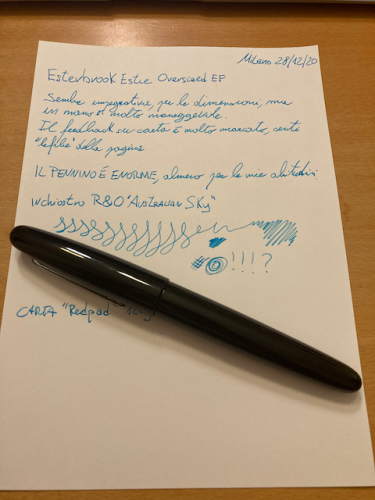 Milano 28/12/20
Esterbrook Estie Oversized EF
Sembra impegnativa, per le dimensioni, ma
in mano è molto maneggevole.
Il feedback su carta è molto marcato, senti
della pagina
IL PENNINO È ENORME, almeno per le mie abitudini
inchiostro R&O "AUSTRALIAN SKY"
!!!?
CARTA "Redpad"